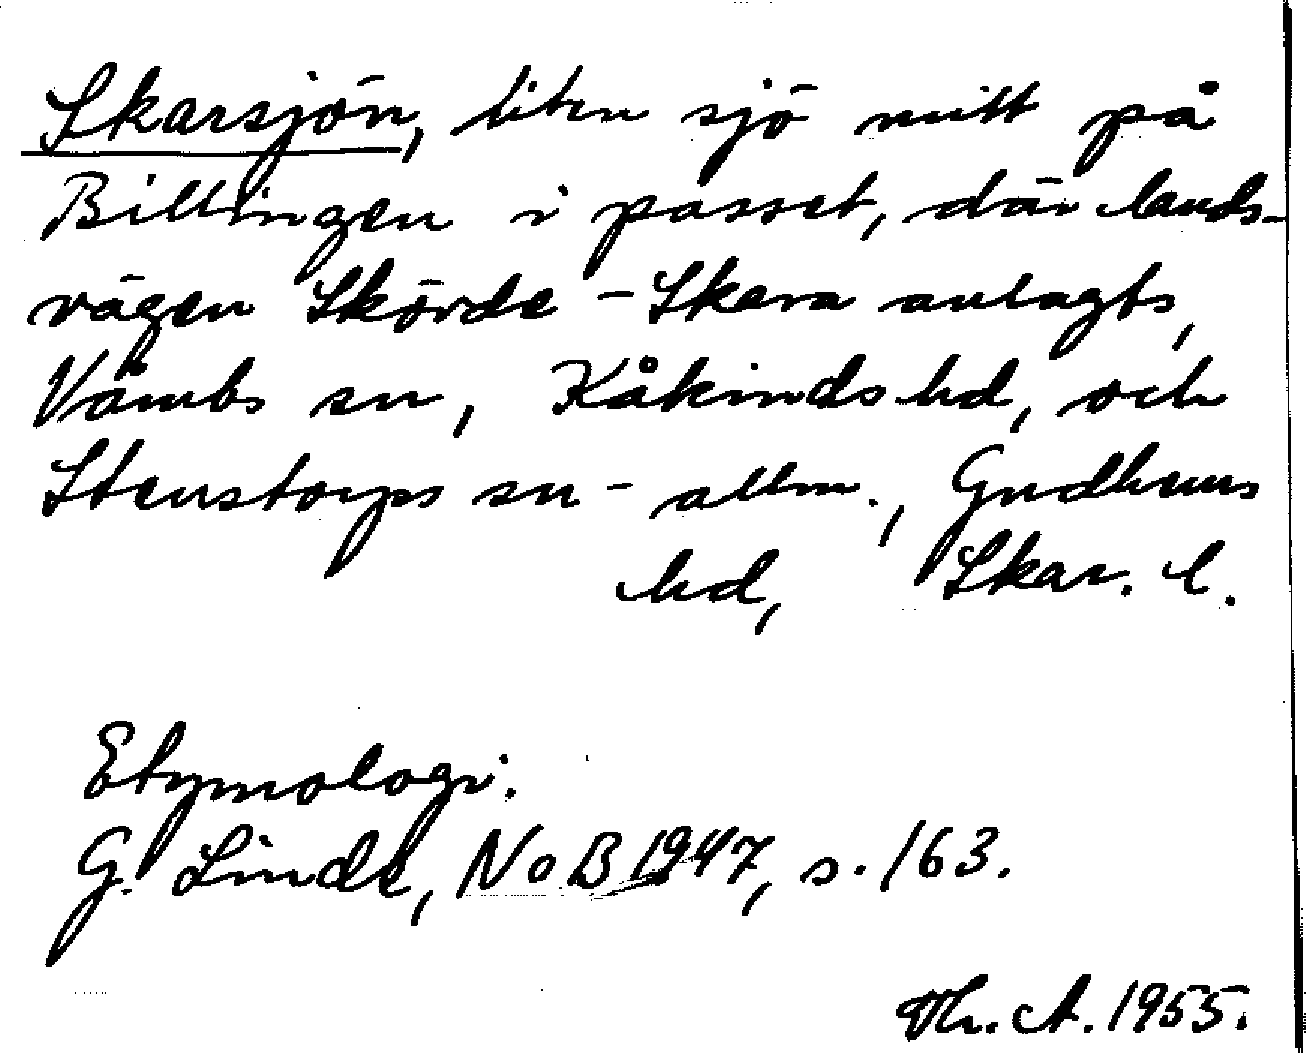 Skarsjön, liten sjö mitt på
Billingen i passet, där lands-
vägen Skövde - Skara anlagts,
Våmbs sn, Kåkinds hd, och
Stenstorps sn - allm., Gudhems
hd, Skar. l.
Etymologi.
G. Linde, NoB 1947, s. 163.
Th. A. 1955.